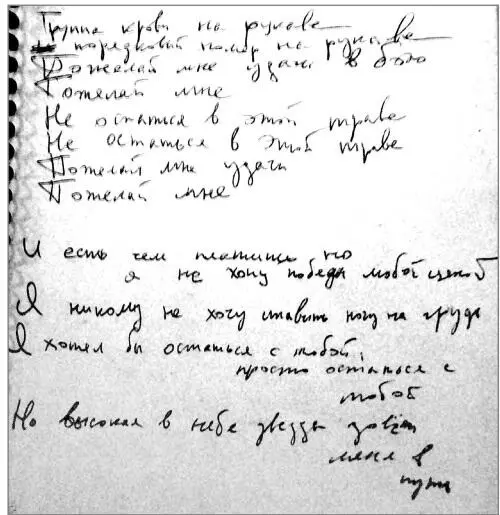 Группа крови на рукаве
порядковый номер на рукаве
Пожелай мне удачи в бою
Пожелай мне
Не остаться в этой траве
Не остаться в этой траве
Пожелай мне удачи
Пожелай мне
И есть чем платить, но
я не хочу победы любой ценой
Я никому не хочу ставить ногу на грудь
Я хотел бы остаться с тобой,
просто остаться с
тобой
Но высокая в небе звезда зовет
меня в
путь